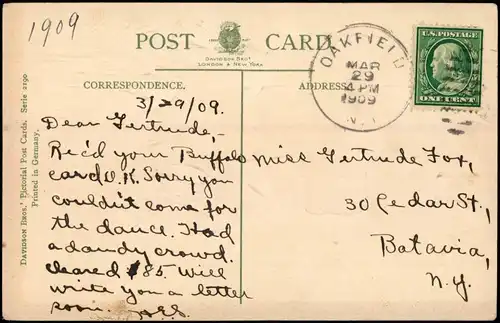 1909
POST CARD
DAVIDSON BROS.
LONDON & NEW YORK
OAKFIELD
MAR
29
4 PM
1909
N.Y.
U.S. POSTAGE
ONE CENT
CORRESPONDENCE.
ADDRESS
DAVIDSON BROS.' Pictorial Post Cards. Serie 2190
Printed in Germany.
3/29/09.
Dear Gertrude,-
Rec'd your Buffalo
card O.K. Sorry you
couldn't come for
the dance. Had
a dandy crowd.
cleared $85. Will
write you a letter
soon.
Miss Gertrude Fox,
30 Cedar St.,
Batavia,
N.Y.